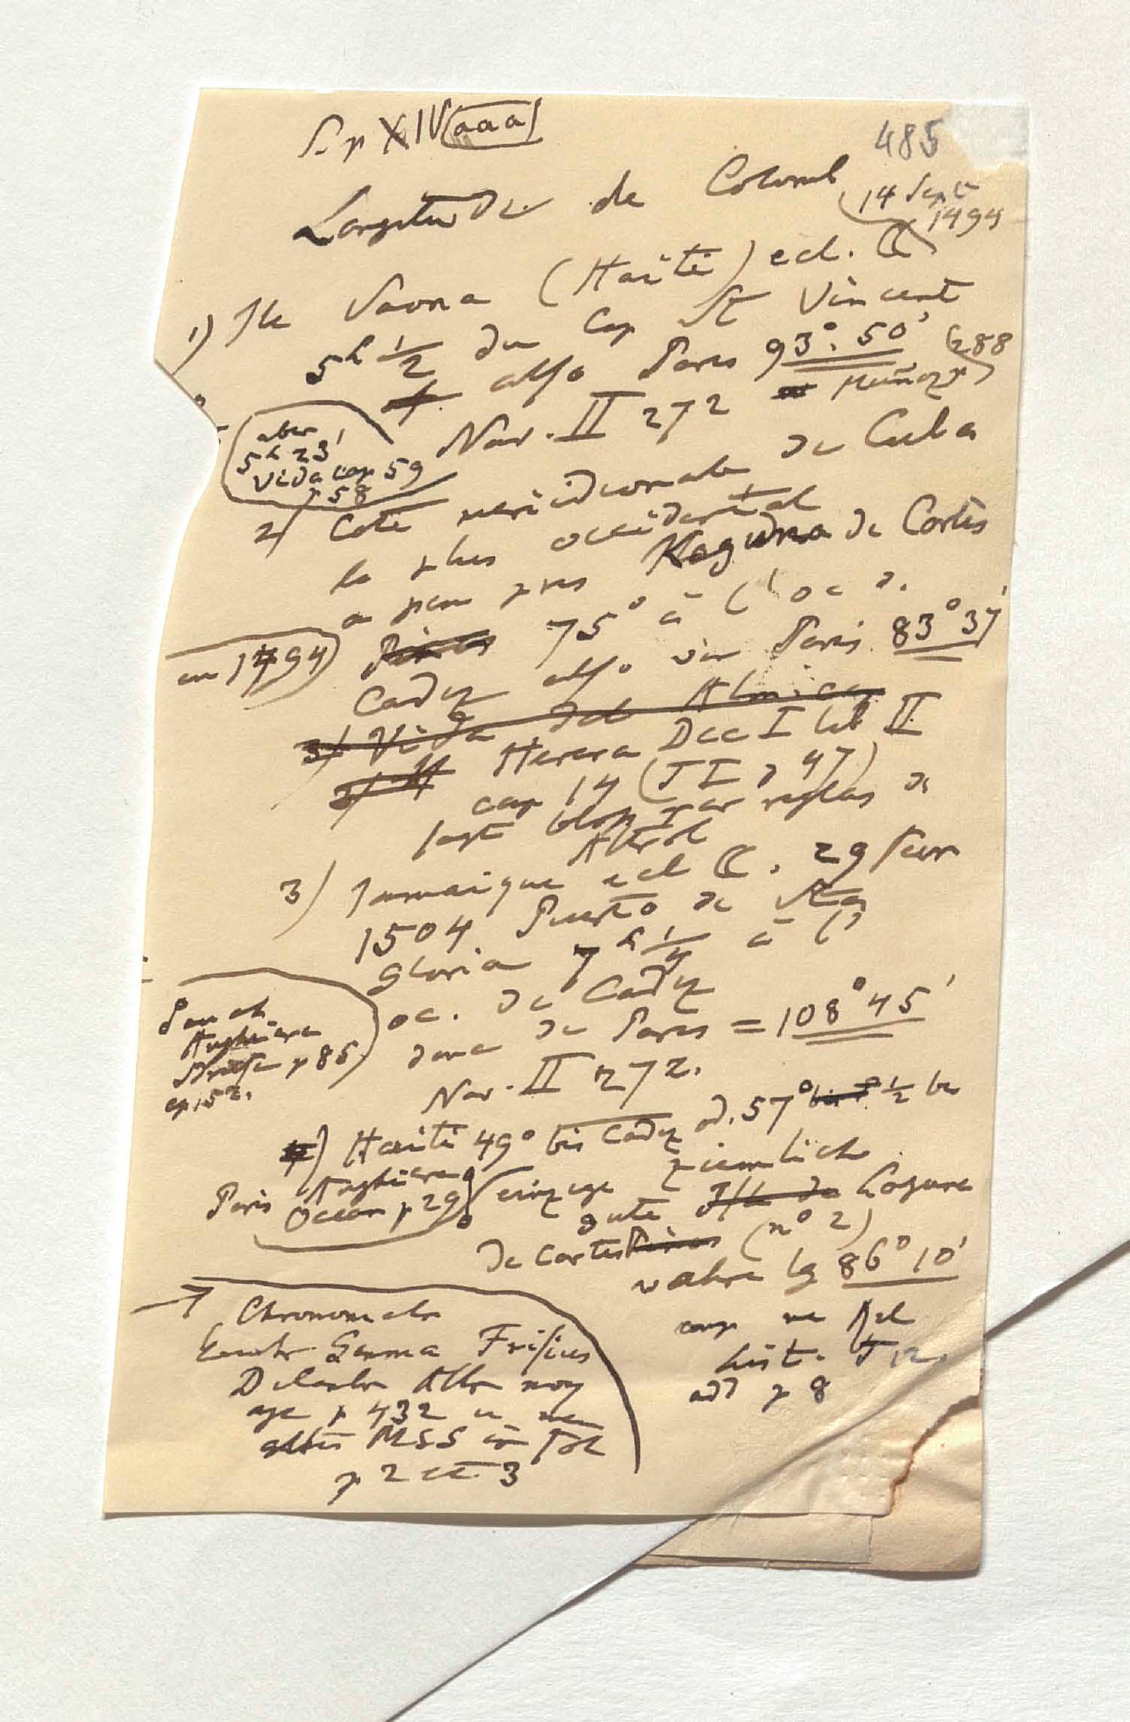 XIV aaa
485
Longitude de Colomb
(14 Sept
1494
1) Ile Saona (Haiti) ecl. ☾
5h ½ du Cap St Vincent
also Paris 93°. 50'
Muñoz p 288
Nav. II 272
aber
5h 23'
Vida cap 59
p 58
2) Cote meridionale de Cuba
la plus occidental
a peu pres Laguna de Cortes
en 1494)
Pinos 75° à l'oc d.
Cadiz also von Paris 83° 37'
3) Vida del Almirante
3) H Herera Dec I lib II
cap 14 (T I p 47)
sagt blos par reglas de
Astrol
3) Jamaique ecl ☾. 29 Febr
1504 Puerto de Sta
Gloria 7h ¼ à l'
oc. de Cadiz
donc de Paris = 108° 45'
Nav. II 272.
Anghiera
p 85
ep. 152.
4) Haiti 49° bis Cadiz od. 57° ½ bis
Paris
Anghiera
Ocean p 29
einzige ziemlich
gute Isle de Lagune
de Cortes Pinos (nº 2)
wahre lg 86° 10'
comp me Rel
hist. T III
add p 8
→ Chronometer
Gemma Frisius
Delambre Astr moy
age p 432 u me
altes MSS in Fol
p 2 et 3